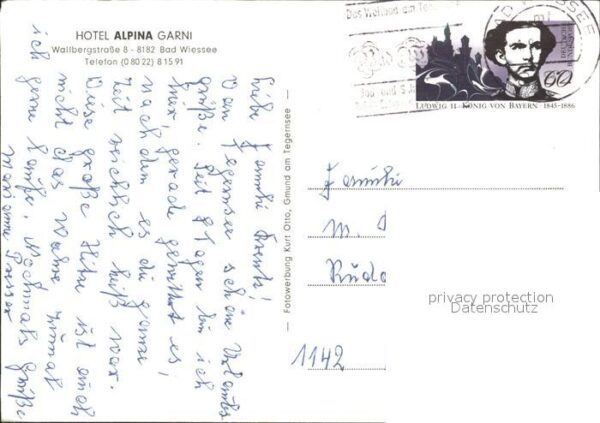 HOTEL ALPINA GARNI
Wallbergstraße 8 - 8182 Bad Wiessee
Telefon (0 80 22) 8 15 91
BAD WIESSEE
Das Weltbad am
60
LUDWIG II. KÖNIG VON BAYERN · 1845-1886
Liebe Familie
Vom Tegernsee schöne Urlaubs
grüße. Seit 9 Tagen bin ich
hier, gerade gewittert es,
nachdem es die ganze
Zeit reichlich heiß war.
Diese große Hitze ist auch
nicht das Wahre zumal
ich gerne laufe. Nochmals Grüße
Marianne
— Fotowerbung Kurt Otto, Gmund am Tegernsee —
Familie
M.
Rudo
1142
privacy protection
Datenschutz